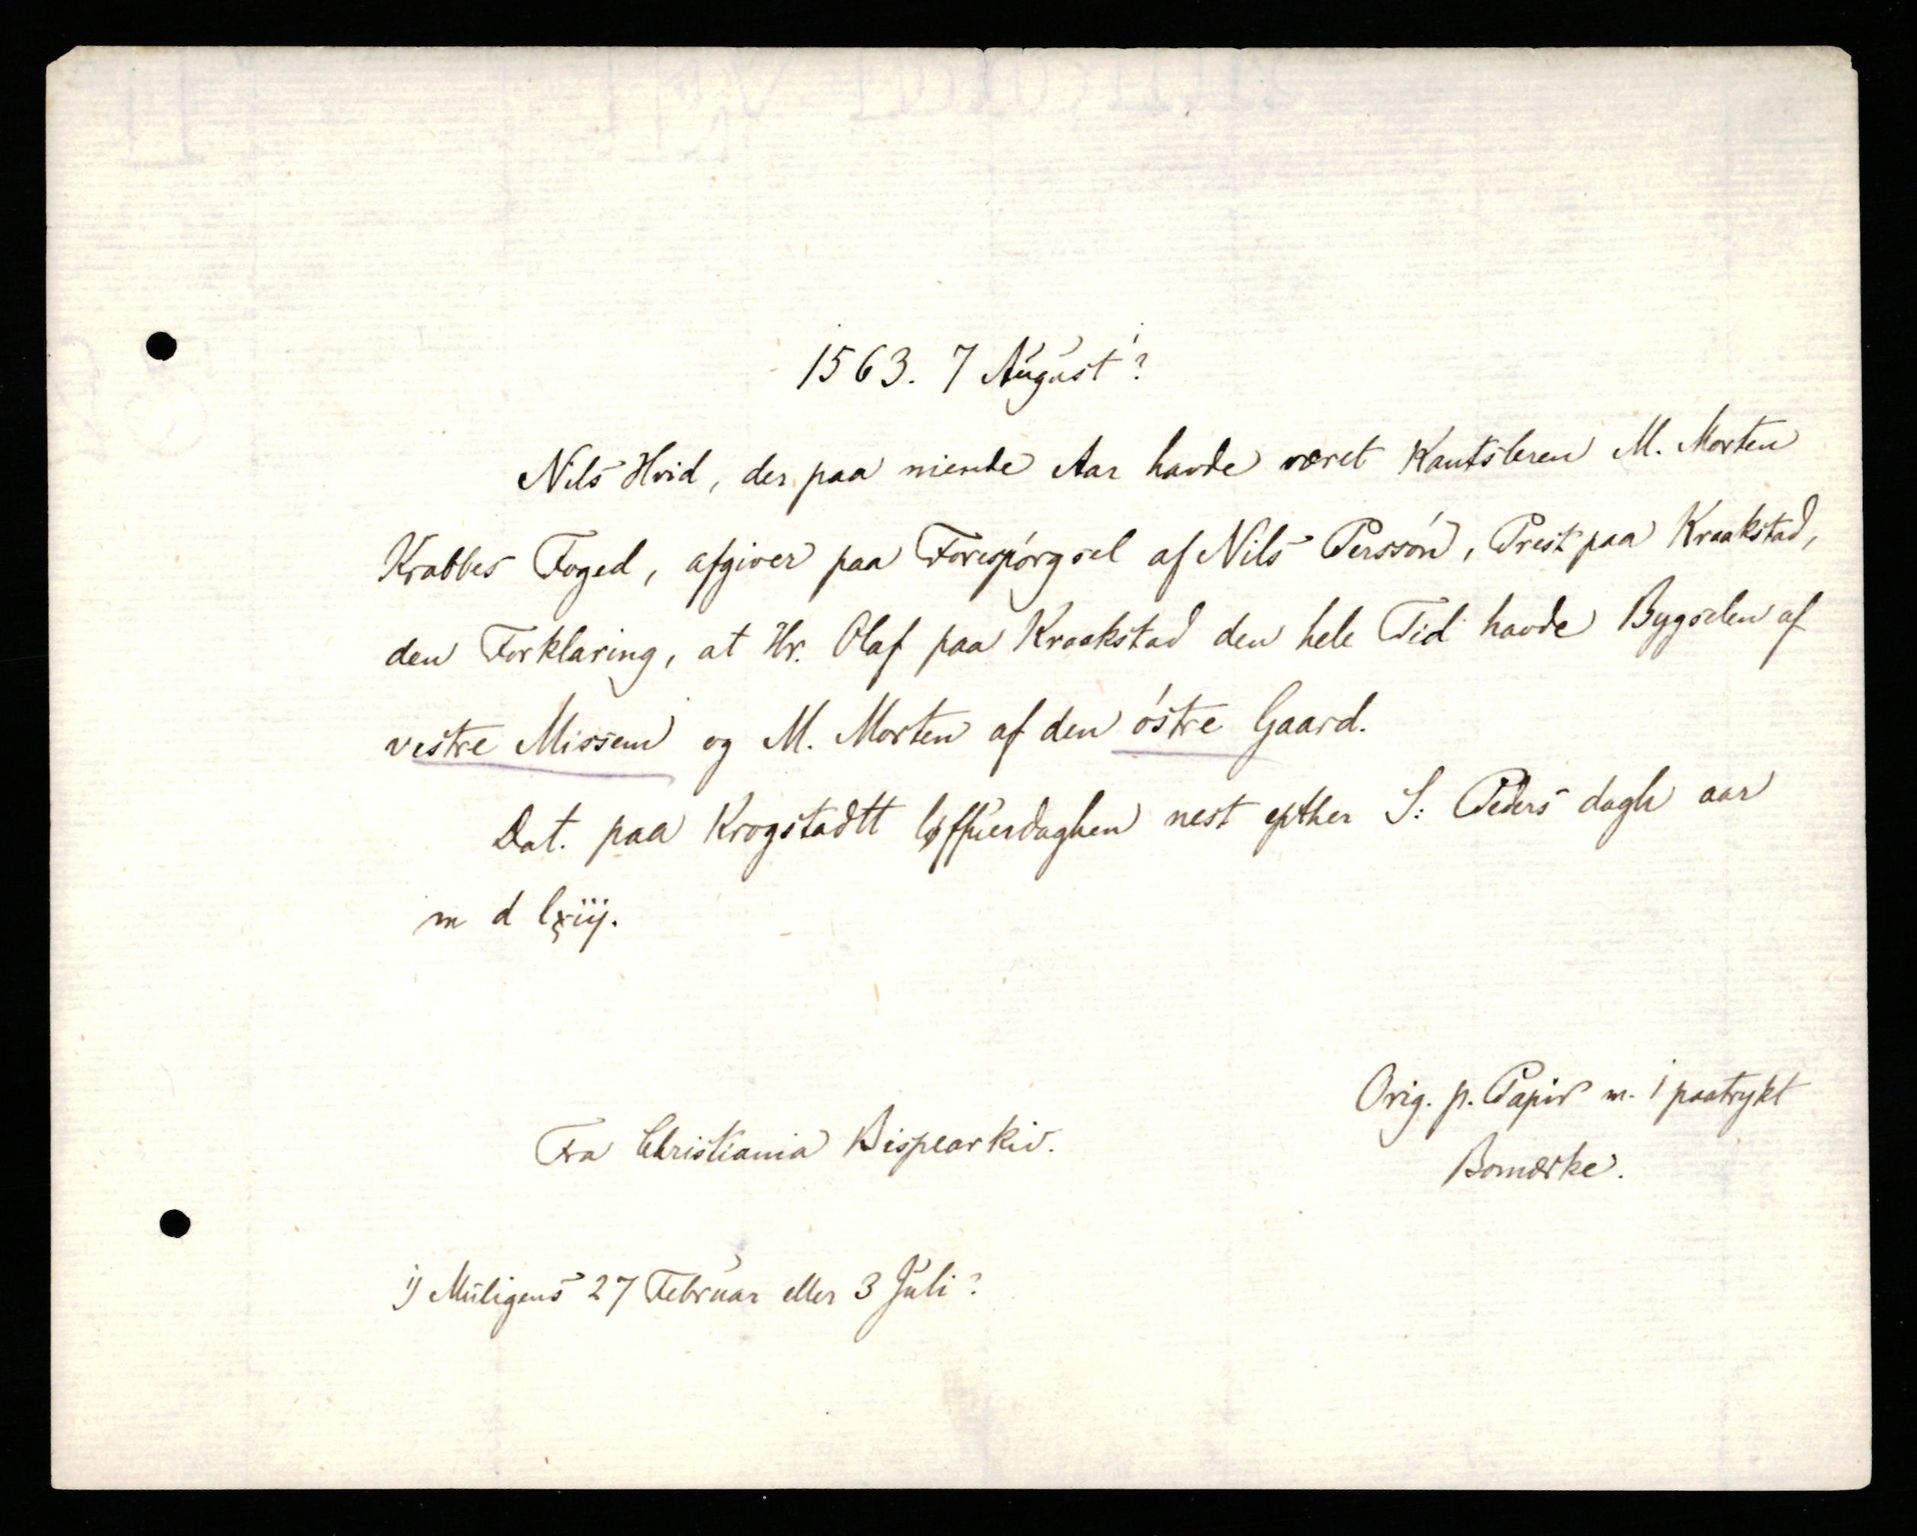 1563. 7 August ¹?
Nils Hvid, der paa niende Aar havde været Kantsleren M. Morten
Krabbes Foged, afgiver paa Forespórgsel af Nils Perssón, Prest paa Kraakstad,
den Forklaring, at Hr. Olaf paa Kraakstad den hele Tid havde Bygselen af
vestre Missem og M. Morten af den óstre Gaard.
Dat. paa Krogstadtt løffuerdaghen nest epther S: Peders dagh aar
m d lxiij.
Orig. p. Papir m. 1 paatrykt
Bomærke.
Fra Christiania Bispearkiv.
1) Muligens 27 Februar eller 3 Juli?